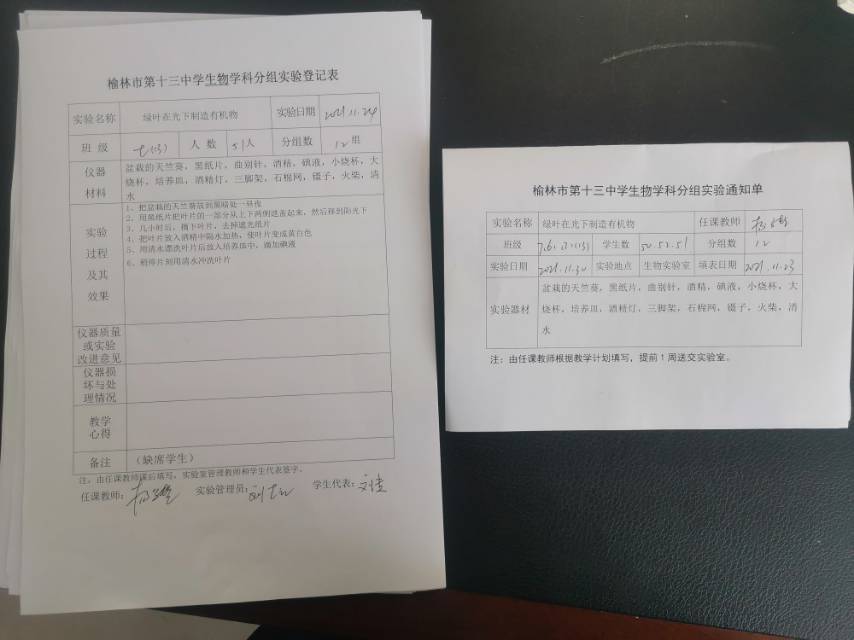 榆林市第十三中学生物学科分组实验登记表
实验名称 绿叶在光下制造有机物 实验日期 2021.11.24
班 级 七(13) 人 数 51人 分组数 12组
仪器 材料 盆栽的天竺葵，黑纸片，曲别针，酒精，碘液，小烧杯，大
烧杯，培养皿，酒精灯，三脚架，石棉网，镊子，火柴，清
水
实验 过程 及其 效果
1、把盆栽的天竺葵放到黑暗处一昼夜
2、用黑纸片把叶片的一部分从上下两侧遮盖起来，然后移到阳光下
3、几小时后，摘下叶片，去掉遮光纸片
4、把叶片放入酒精中隔水加热，使叶片变成黄白色
5、用清水漂洗叶片后放入培养皿中，滴加碘液
6、稍待片刻用清水冲洗叶片
仪器质量
或实验
改进意见
仪器损
坏与处
理情况
教学
心得
备注 （缺席学生）
注：由任课教师课后填写，实验室管理教师和学生代表签字。
任课教师： 实验管理员： 学生代表：
榆林市第十三中学生物学科分组实验通知单
实验名称 绿叶在光下制造有机物 任课教师
班级 学生数 50.52.51 分组数 12
实验日期 2021.11.30 实验地点 生物实验室 填表日期 2021.11.23
实验器材 盆栽的天竺葵，黑纸片，曲别针，酒精，碘液，小烧杯，大
烧杯，培养皿，酒精灯，三脚架，石棉网，镊子，火柴，清
水
注：由任课教师根据教学计划填写，提前1周送交实验室。